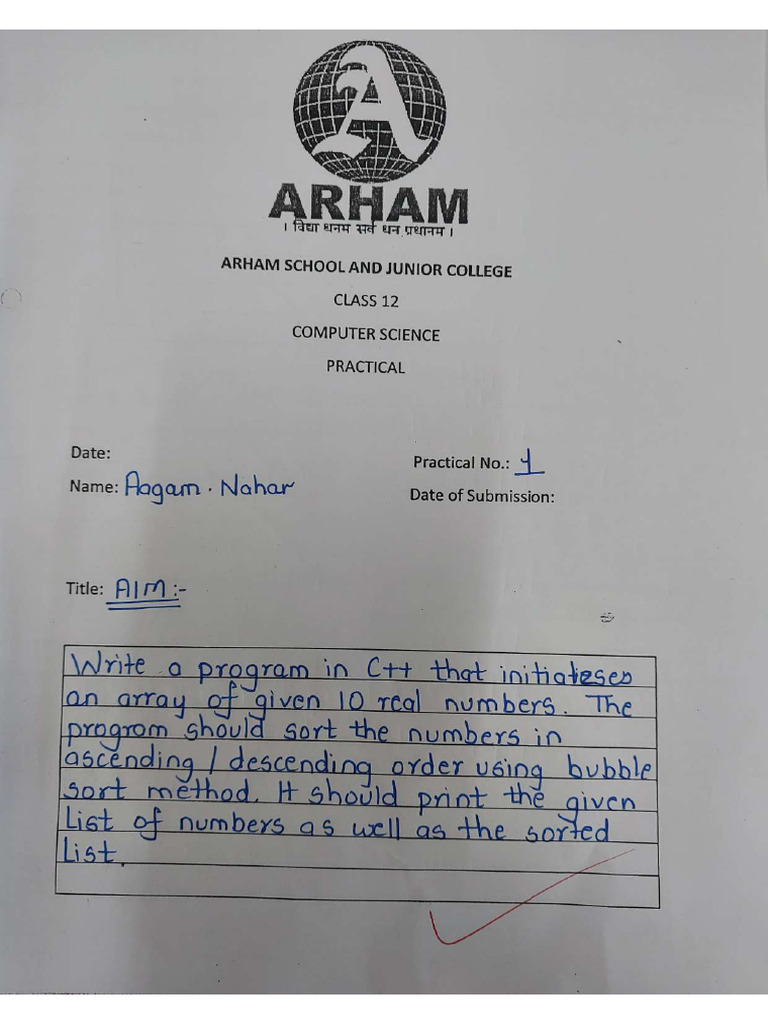 A
ARHAM
। विद्या धनम सर्व धन प्रधानम ।
ARHAM SCHOOL AND JUNIOR COLLEGE
CLASS 12
COMPUTER SCIENCE
PRACTICAL
Date:
Practical No.: 1
Name: Aagam. Nahar
Date of Submission:
Title: AIM :-
Write a program in C++ that initiatezses
an array of given 10 real numbers. The
program should sort the numbers in
ascending / descending order using bubble
sort method. It should print the given
List of numbers as well as the sorted
List.